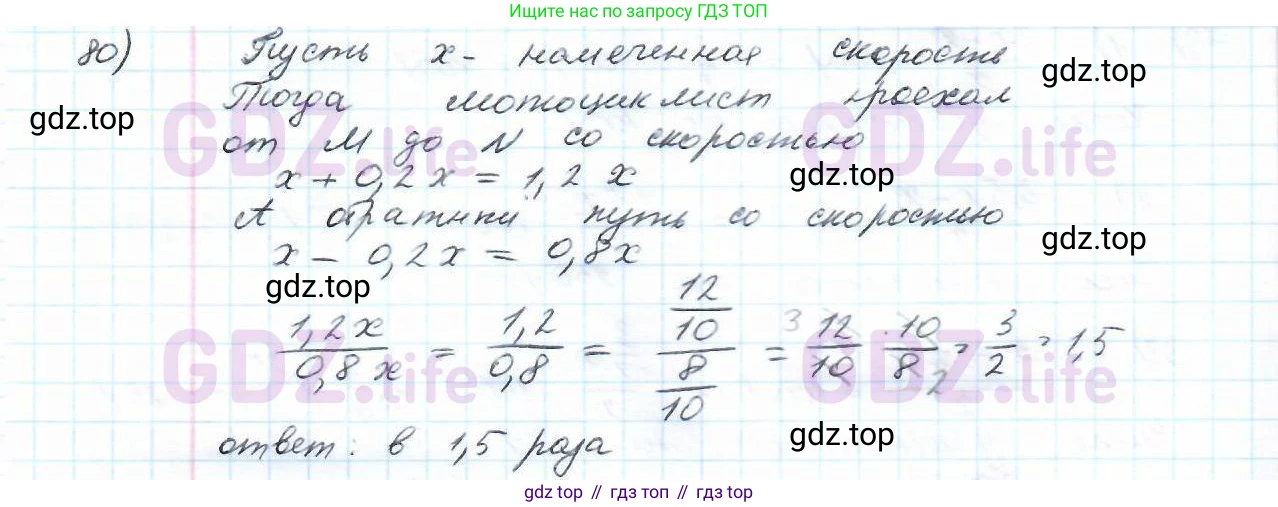 Ищите нас по запросу ГДЗ ТОП
80) Пусть x - намеченная скорость
gdz.top
Тогда мотоциклист проехал
gdz.top
GDZ.life GDZ.life
от M до N со скоростью
x + 0,2x = 1,2 x
gdz.top
А обратный путь со скоростью
gdz.top
x - 0,2x = 0,8x
gdz.top
1,2x/0,8x = 1,2/0,8 = 12/10 / 8/10 = 3 12/10 · 10/8 2 = 3/2 = 1,5
GDZ.life GDZ.life
ответ: в 1,5 раза
gdz.top
gdz top // гдз топ // gdz top